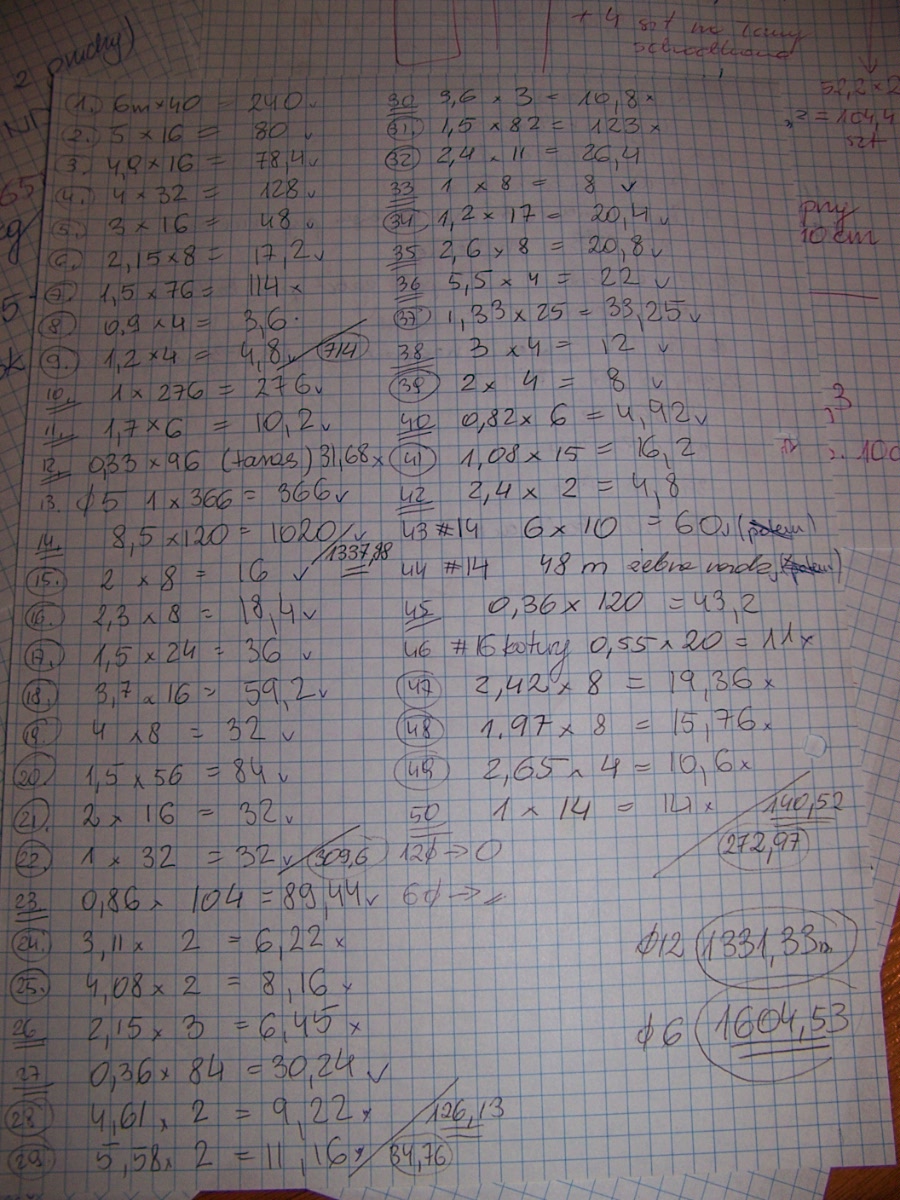 + 4 szt na
2
1. 6m×40 = 240 v
2. 5 × 16 = 80 v
3. 4,9 × 16 = 78,4 v
4. 4 × 32 = 128 v
5. 3 × 16 = 48 v
6. 2,15 × 8 = 17,2 v
7. 1,5 × 76 = 114 x
8 0,9 × 4 = 3,6 .
9. 1,2 × 4 = 4,8 v 714
10. 1 × 276 = 276 v
11. 1,7 × 6 = 10,2 v
12. 0,33 × 96 (taras) 31,68 x
13. ϕ5 1 × 366 = 366 v
14. 8,5 × 120 = 1020 v 1337,88
15. 2 × 8 = 16 v
16. 2,3 × 8 = 18,4 v
17. 1,5 × 24 = 36 v
18. 3,7 × 16 = 59,2 v
19. 4 × 8 = 32 v
20. 1,5 × 56 = 84 v
21. 2 × 16 = 32 v
22. 1 × 32 = 32 v 309,6
23. 0,86 × 104 = 89,44 v
24. 3,11 × 2 = 6,22 x
25. 4,08 × 2 = 8,16 x
26 2,15 × 3 = 6,45 x
27 0,36 × 84 = 30,24 v
28 4,61 × 2 = 9,22 x 126,13
29 5,58 × 2 = 11,16 x 34,76
30 3,6 × 3 = 10,8 x
31. 1,5 × 82 = 123 x
32 2,4 × 11 = 26,4
33 1 × 8 = 8 v
34 1,2 × 17 = 20,4 v
35 2,6 × 8 = 20,8 v
36 5,5 × 4 = 22 v
37 1,33 × 25 = 33,25 v
38 3 × 4 = 12 v
39 2 × 4 = 8 v
40 0,82 × 6 = 4,92 v
41 1,08 × 15 = 16,2
42 2,4 × 2 = 4,8
43 #14 6 × 10 = 60 v
44 #14 48 m żebra
45 0,36 × 120 = 43,2
46 #16 kotwy 0,55 × 20 = 11 x
47 2,42 × 8 = 19,36 x
48 1,97 × 8 = 15,76 x
49 2,65 × 4 = 10,6 x
50 1 × 14 = 14 x 140,52
12ϕ → 0 272,97
6ϕ →
ϕ12 1331,33m
ϕ6 1604,53
52,2 × 2
= 104,4
szt
przy
10 cm